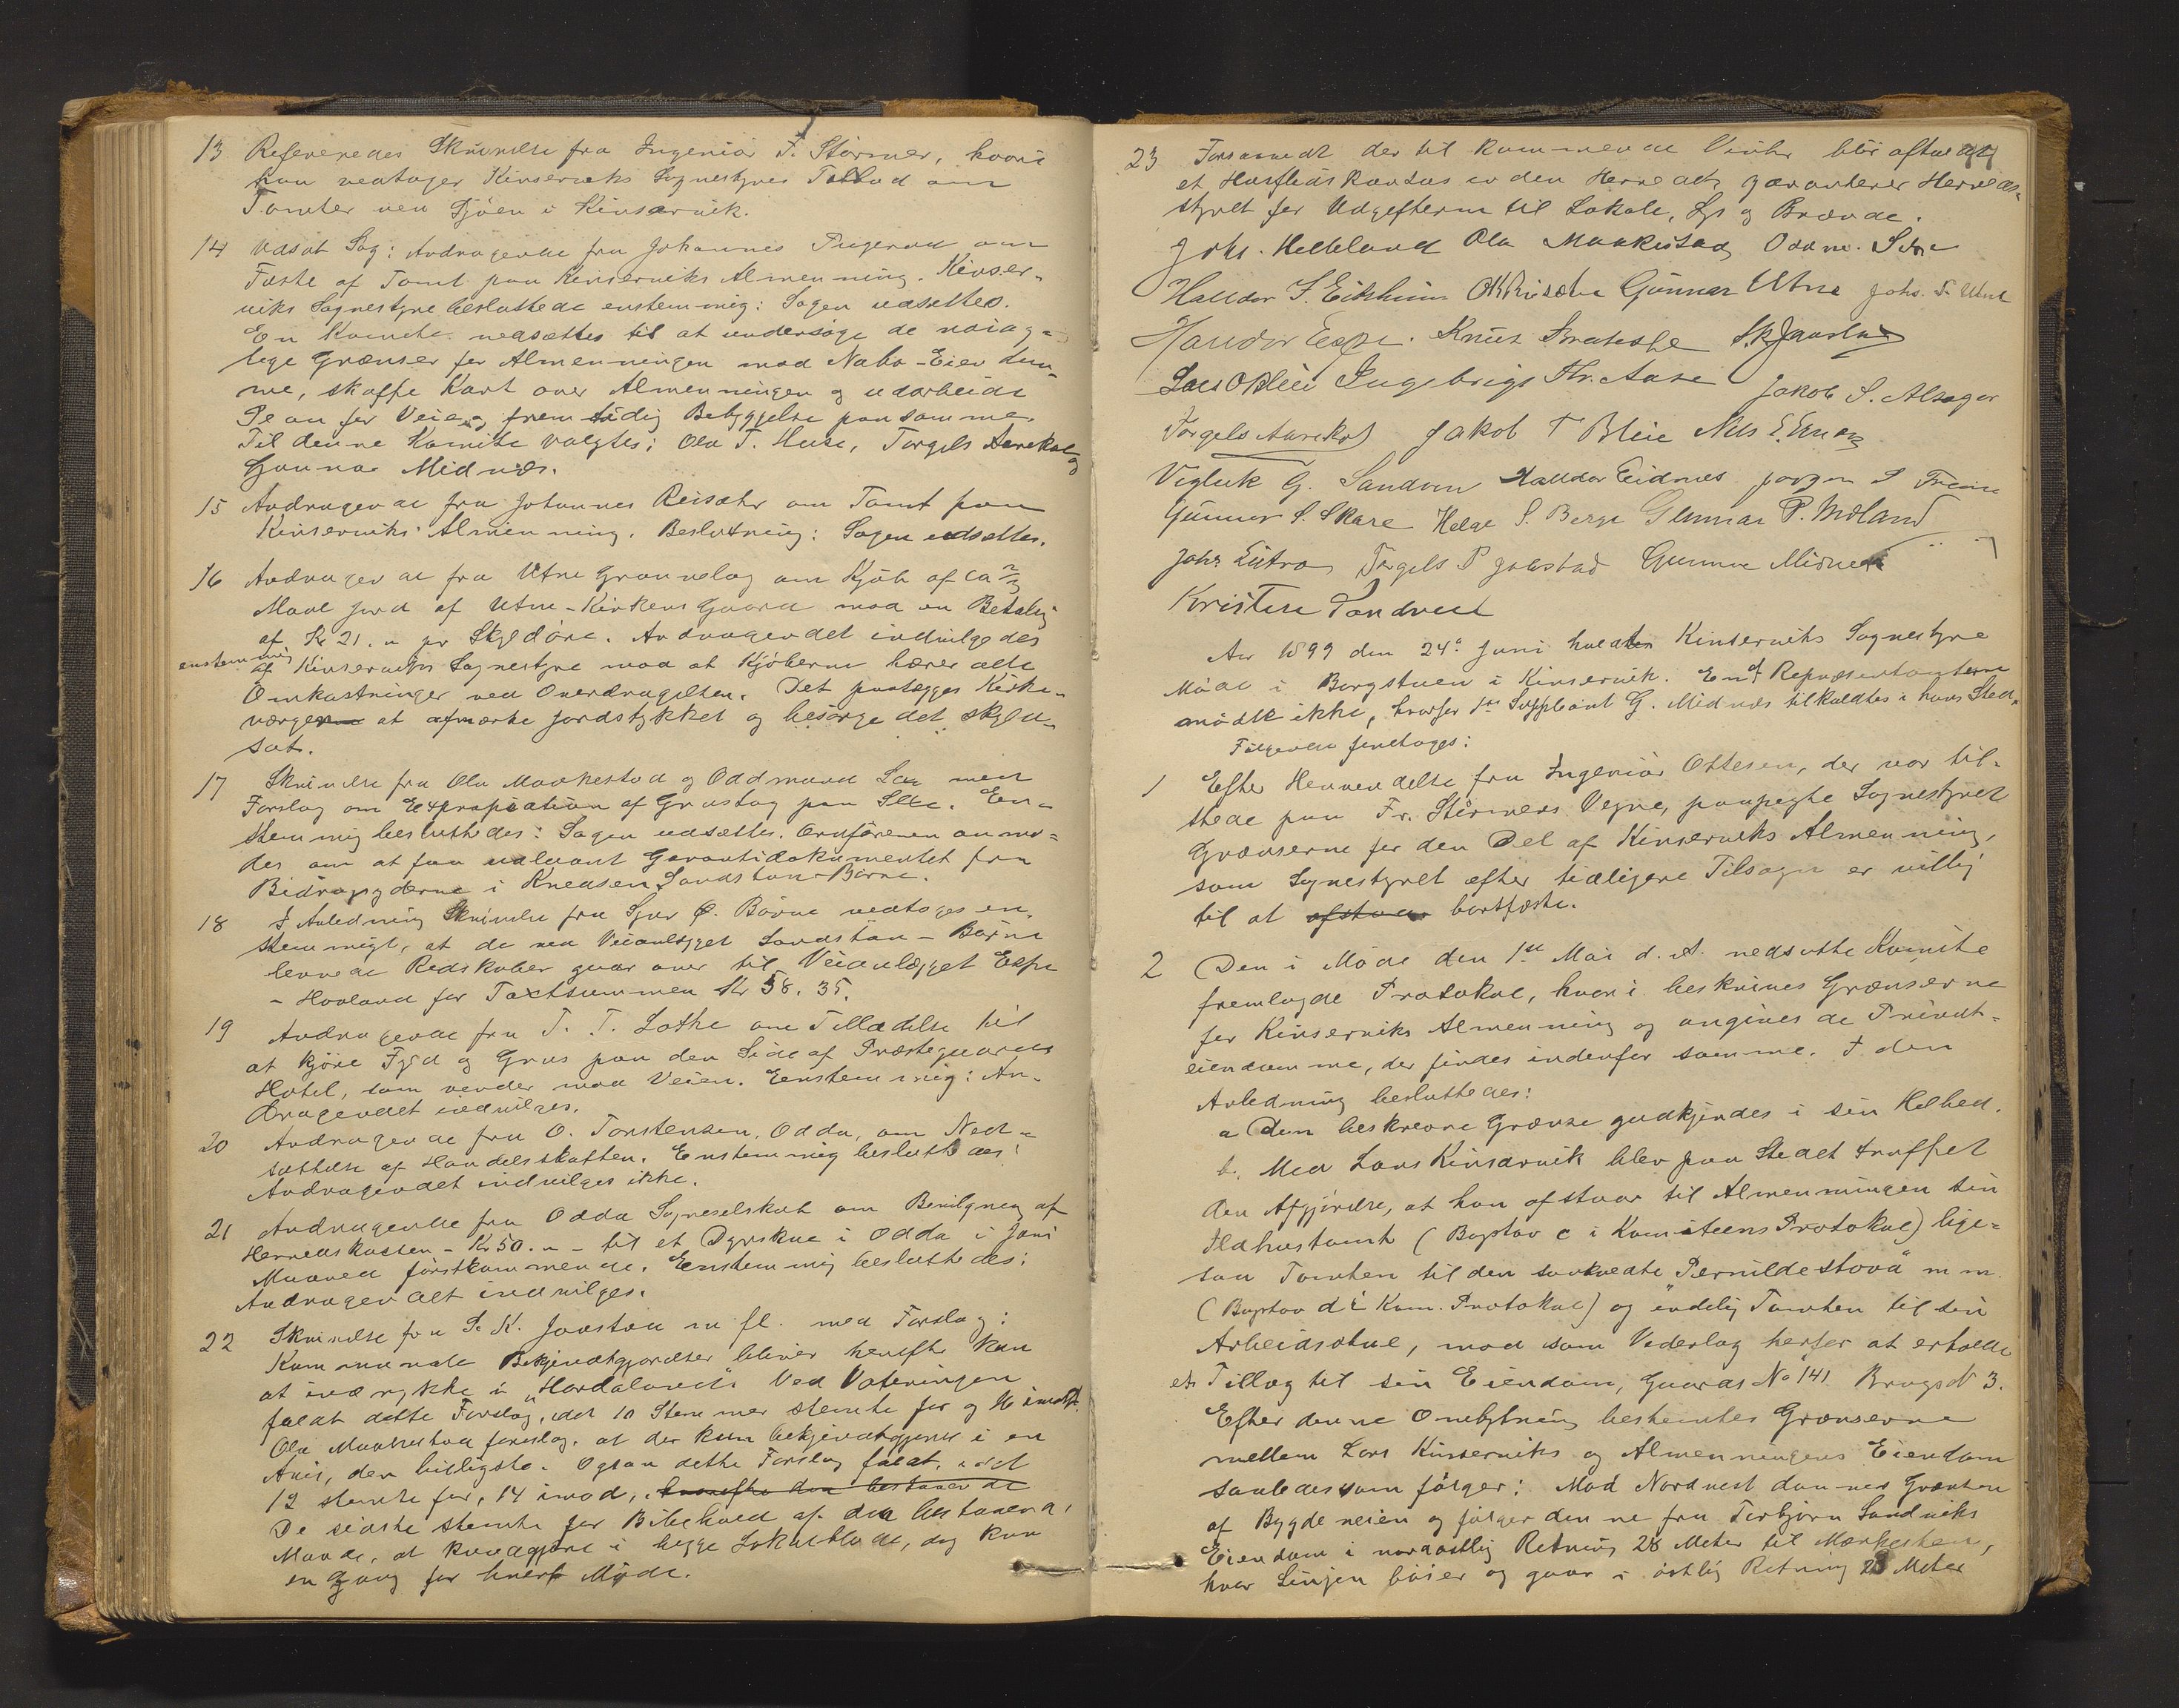 13 Refereredes Skrivelse fra Ingeniør F. Størmer, hvori
han vedtager Kinserviks Sognestyres Tilbud om
Tomter ved Sjøen i Kinsarvik.
14 Udsat Sag: Andragende fra Johannes Tingerød om
Fæste af Tomt paa Kinserviks Almenning. Kinser-
viks Sognestyre besluttede enstemmig: Sagen udsættes.
En Komite nedsættes til at undersøge de nøiag-
tige Grænser for Almenningen mod Nabo-Eiendom-
me, skaffe Kart over Almenningen og udarbeide
Plan for Veie og fremtidig Bebyggelse paa samme.
Til denne Komite valgtes: Ola T. Huse, Torgels Aarekol og
Gunnar Midnæs.
15 Andragende fra Johannes Reisæter om Tomt paa
Kinserviks Almenning. Beslutning: Sagen udsættes.
16 Andragende fra Utne Grannelag om Kjøb af ca
Maal Jord af Utne-Kirkens Gaard mod en Betaling
af Kr 21. " pr Skyldøre. Andragendet indvilgedes
enstemmig af Kinserviks Sognestyre mod at Kjøberne bærer alle
Omkostninger ved Overdragelsen. Det paalægges Kirke-
værgerne at afmærke Jordstykket og besørge det skyld-
sat.
17 Skrivelse fra Ola Maakestad og Oddmund med
Forslag om Expropriation af Grustag paa. En-
stemmig besluttedes: Sagen udsættes. Ordføreren anmo-
des om at faa udlaant Garantidokumentet fra
Bidragsyderne i Kneasen Sandstøn-Børve.
18 I Anledning Skrivelse fra Sjur O. Børve vedtoges en-
stemmigt, at de ved Veianlægget Sandstøn - Børve
levnede Redskaber gaar over til Veianlægget Espe
- Hovland for Taxtsummen Kr 58. 35.
19 Andragende fra T. T. Lothe om Tilladelse til
at kjøre Fyld og Grus paa den Side af Præstegaarden
Hotel, som vender mod Veien. Enstemmig: An-
dragendet indvilges.
20 Andragende fra O. Torstensen, Odda, om Ned-
sættelse af Handelsskatten. Enstemmig besluttedes:
Andragendet indvilges ikke.
21 Andragende fra Odda Sogneselskab om Bevilgning af
Herredskassen - Kr 50. " - til et Dyrskue i Odda i Juni
Maaned førstkommende. Enstemmig besluttedes:
Andragendet indvilges.
22 Skrivelse fra S. K. Jaastad m fl. med Forslag:
Kommunale Bekjendtgjørelser bliver herefter kun
at indrykke i "Hardaland". Ved Voteringen
faldt dette Forslag, idet 10 Stemmer stemte for og 16 imod.
Ola Maakestad foreslog, at der kun bekjendtgjøres i en
Avis, den billigste. Ogsaa dette Forslag faldt, idet
12 stemte for, 14 imod, hvorefter den bestaaende
De sidste stemte for Bibehold af den bestaaende
Maade, at kundgjøre i begge Lokalblade, dog kun
en Gang for hvert Møde.
23 Forsaavidt der til kommende Vinter blir afholdt
et Husflidskursus inden Herredet, garanterer Herreds-
styret for Udgifterne til Lokale, Lys og Brænde.
Johs. Helleland Ola Maakestad Oddm.
Halldor S. Eikheim Gunnar Utne Johs. T. Utne
Halldor Espe. Knut S.K. Jaastad
Lars O Bleie Ingebrigt Hr. Aase Jakob S. Alsager
Torgels Aarekol Jakob T Bleie Nils
Vigleik G. Sandven Halldor Eidnes Jørgen
Gunnar S. Skare Helge S. Berge Gunnar P. Moland
Johs Lutro Torgels P Jaastad Gunnar Midnæs
Kristen Sandved
Aar 1899 den 24de Juni holdtes Kinserviks Sognestyre
Møde i Borgstuen i Kinservik. En af Repræsentanterne
mødte ikke, hvorfor 1ste Suppleant G. Midnæs tilkaldtes i hans Sted.
Følgende foretoges:
1 Efter Henvendelse fra Ingeniør Ottesen, der var til-
stede paa Fr. Størmers Vegne, paapegte Sognestyret
Grænserne for den Del af Kinserviks Almenning,
som Sognestyret efter tidligere Tilsagn er villig
til at afstaa bortfæste.
2 Den i Møde den 1ste Mai d. A. nedsatte Komite
fremlagde Protokol, hvori beskrives Grænserne
for Kinserviks Almenning og angives de Privat-
eiendomme, der findes indenfor samme. I den
Anledning besluttedes:
a Den beskrevne Grænse godkjendes i sin Helhed.
b. Med Lars Kinsarvik blev paa Stedet truffet
den Afgjørelse, at han afstaar til Almenningen sin
Ildhustomt (Bogstav c i Komiteens Protokol) lige-
saa Tomten til den saakaldte "Pernildestova" m m.
(Bogstav d i Kom. Protokol) og endelig Tomten til den
Arbeidsstue, mod som Vederlag herfor at erholde
et Tillæg til sin Eiendom, Gaards No 141 Brugs N 3.
Efter denne Ombytning bestemtes Grænserne
mellem Lars Kinserviks og Almenningens Eiendom
saaledes som følger: Mod Nordvest dannes Grænsen
af Bygdeveien og følger denne fra Torbjørn Sandviks
Eiendom i nordøstlig Retning 28 Meter til Mærkesten,
hvor Linjen bøier og gaar i østlig Retning 23 Meter